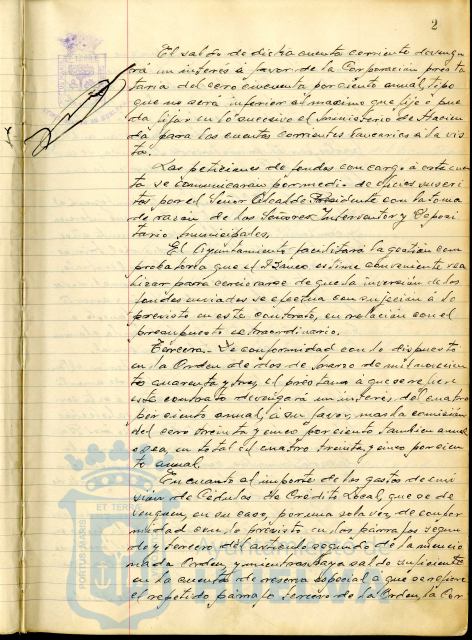 2
El saldo de dicha cuenta corriente devenga
rá un interés a favor de la Corporación presta
taria del cero cincuenta por ciento anual, tipo
que no será inferior al maximo que fije o pue
da fijar en lo sucesivo el Ministerio de Hacien
da para las cuentas corrientes bancarias a la vis
ta.
Las peticiones de fondos con cargo a esta cuen
ta se comunicaran por medio de oficios suscri
tos por el Señor Alcalde Presidente con la toma
de razón de los Señores Interventor y Deposi
tario municipales.
El Ayuntamiento facilitará la gestión com
probatoria que el Banco estime conveniente rea
lizar para cerciorarse de que la inversión de los
fondos enviados se efectua con sujeción a lo
previsto en este contrato, en relación con el
presupuesto extraordinario.
Tercera.- De conformidad con lo dispuesto
en la Orden de dos de marzo de mil novecien
tos cuarenta y tres, el prestamo a que se refiere
este contrato devengará un interes del cuatro
por ciento anual, a su favor, mas la comisión
del cero treinta y cinco por ciento tambien anual
o sea, en total el cuatro treinta y cinco por cien
to anual.
En cuanto al importe de los gastos de emi
sión de Cédulas de Crédito Local, que se de
venguen, en su caso, por una sola vez, de confor
midad con lo previsto en los párrafos segun
do y tercero del articulo segundo de la mencio
nada Orden, y mientras haya saldo suficiente
en la cuenta de reserva especial a que se refiere
el repetido párrafo tercero de la Orden, la Cor
ET TERRA
PORTUS MARIS
Ayuntamiento de